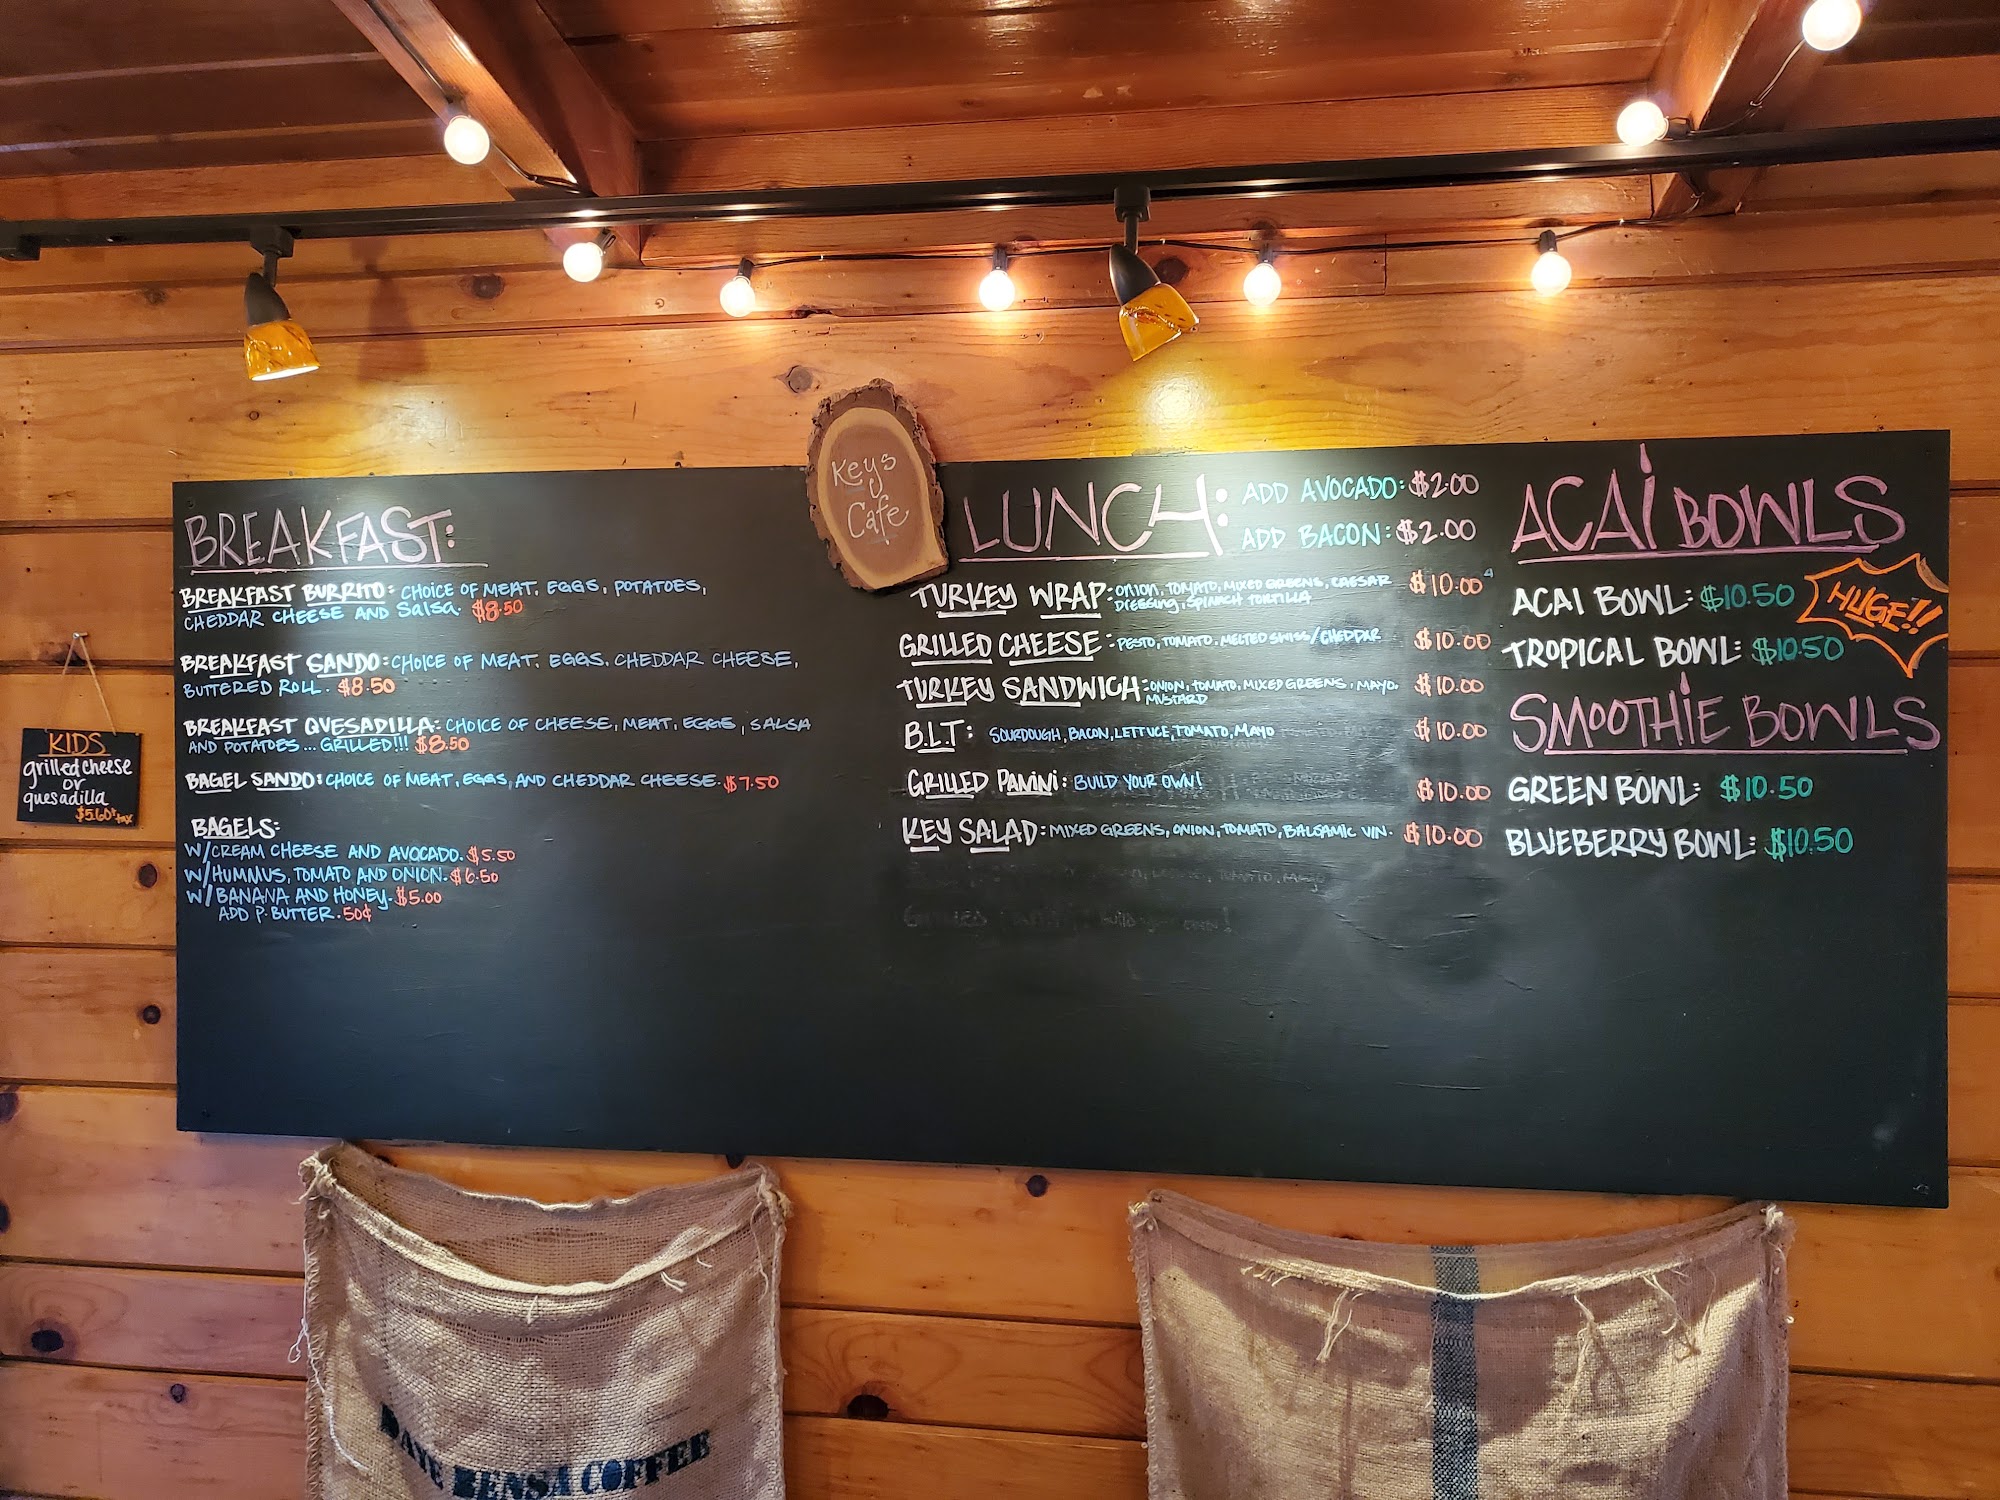 Keys
Cafe
BREAKFAST:
BREAKFAST BURRITO: CHOICE OF MEAT, EGGS, POTATOES,
CHEDDAR CHEESE AND Salsa. $8.50
BREAKFAST SANDO: CHOICE OF MEAT, EGGS, CHEDDAR CHEESE,
BUTTERED ROLL. $8.50
BREAKFAST QUESADILLA: CHOICE OF CHEESE, MEAT, EGGS, SALSA
AND POTATOES... GRILLED!!! $8.50
BAGEL SANDO: CHOICE OF MEAT, EGGS, AND CHEDDAR CHEESE. $7.50
BAGELS:
W/CREAM CHEESE AND AVOCADO. $5.50
W/HUMMUS, TOMATO AND ONION. $6.50
W/BANANA AND HONEY. $5.00
ADD P. BUTTER. 50¢
LUNCH: ADD AVOCADO: $2.00
ADD BACON: $2.00
TURKEY WRAP: ONION, TOMATO, MIXED GREENS, CAESAR $10.00
DRESSING, SPINACH TORTILLA
GRILLED CHEESE: PESTO, TOMATO, MELTED SWISS/CHEDDAR $10.00
TURKEY SANDWICH: ONION, TOMATO, MIXED GREENS, MAYO, $10.00
MUSTARD
B.L.T: SOURDOUGH, BACON, LETTUCE, TOMATO, MAYO $10.00
GRILLED PANINI: BUILD YOUR OWN! $10.00
KEY SALAD: MIXED GREENS, ONION, TOMATO, BALSAMIC VIN. $10.00
ACAI BOWLS
ACAI BOWL: $10.50
HUGE!!
TROPICAL BOWL: $10.50
SMOOTHIE BOWLS
GREEN BOWL: $10.50
BLUEBERRY BOWL: $10.50
KIDS
grilled cheese
or
quesadilla
$5.60+tax
DAYE BENSA COFFEE